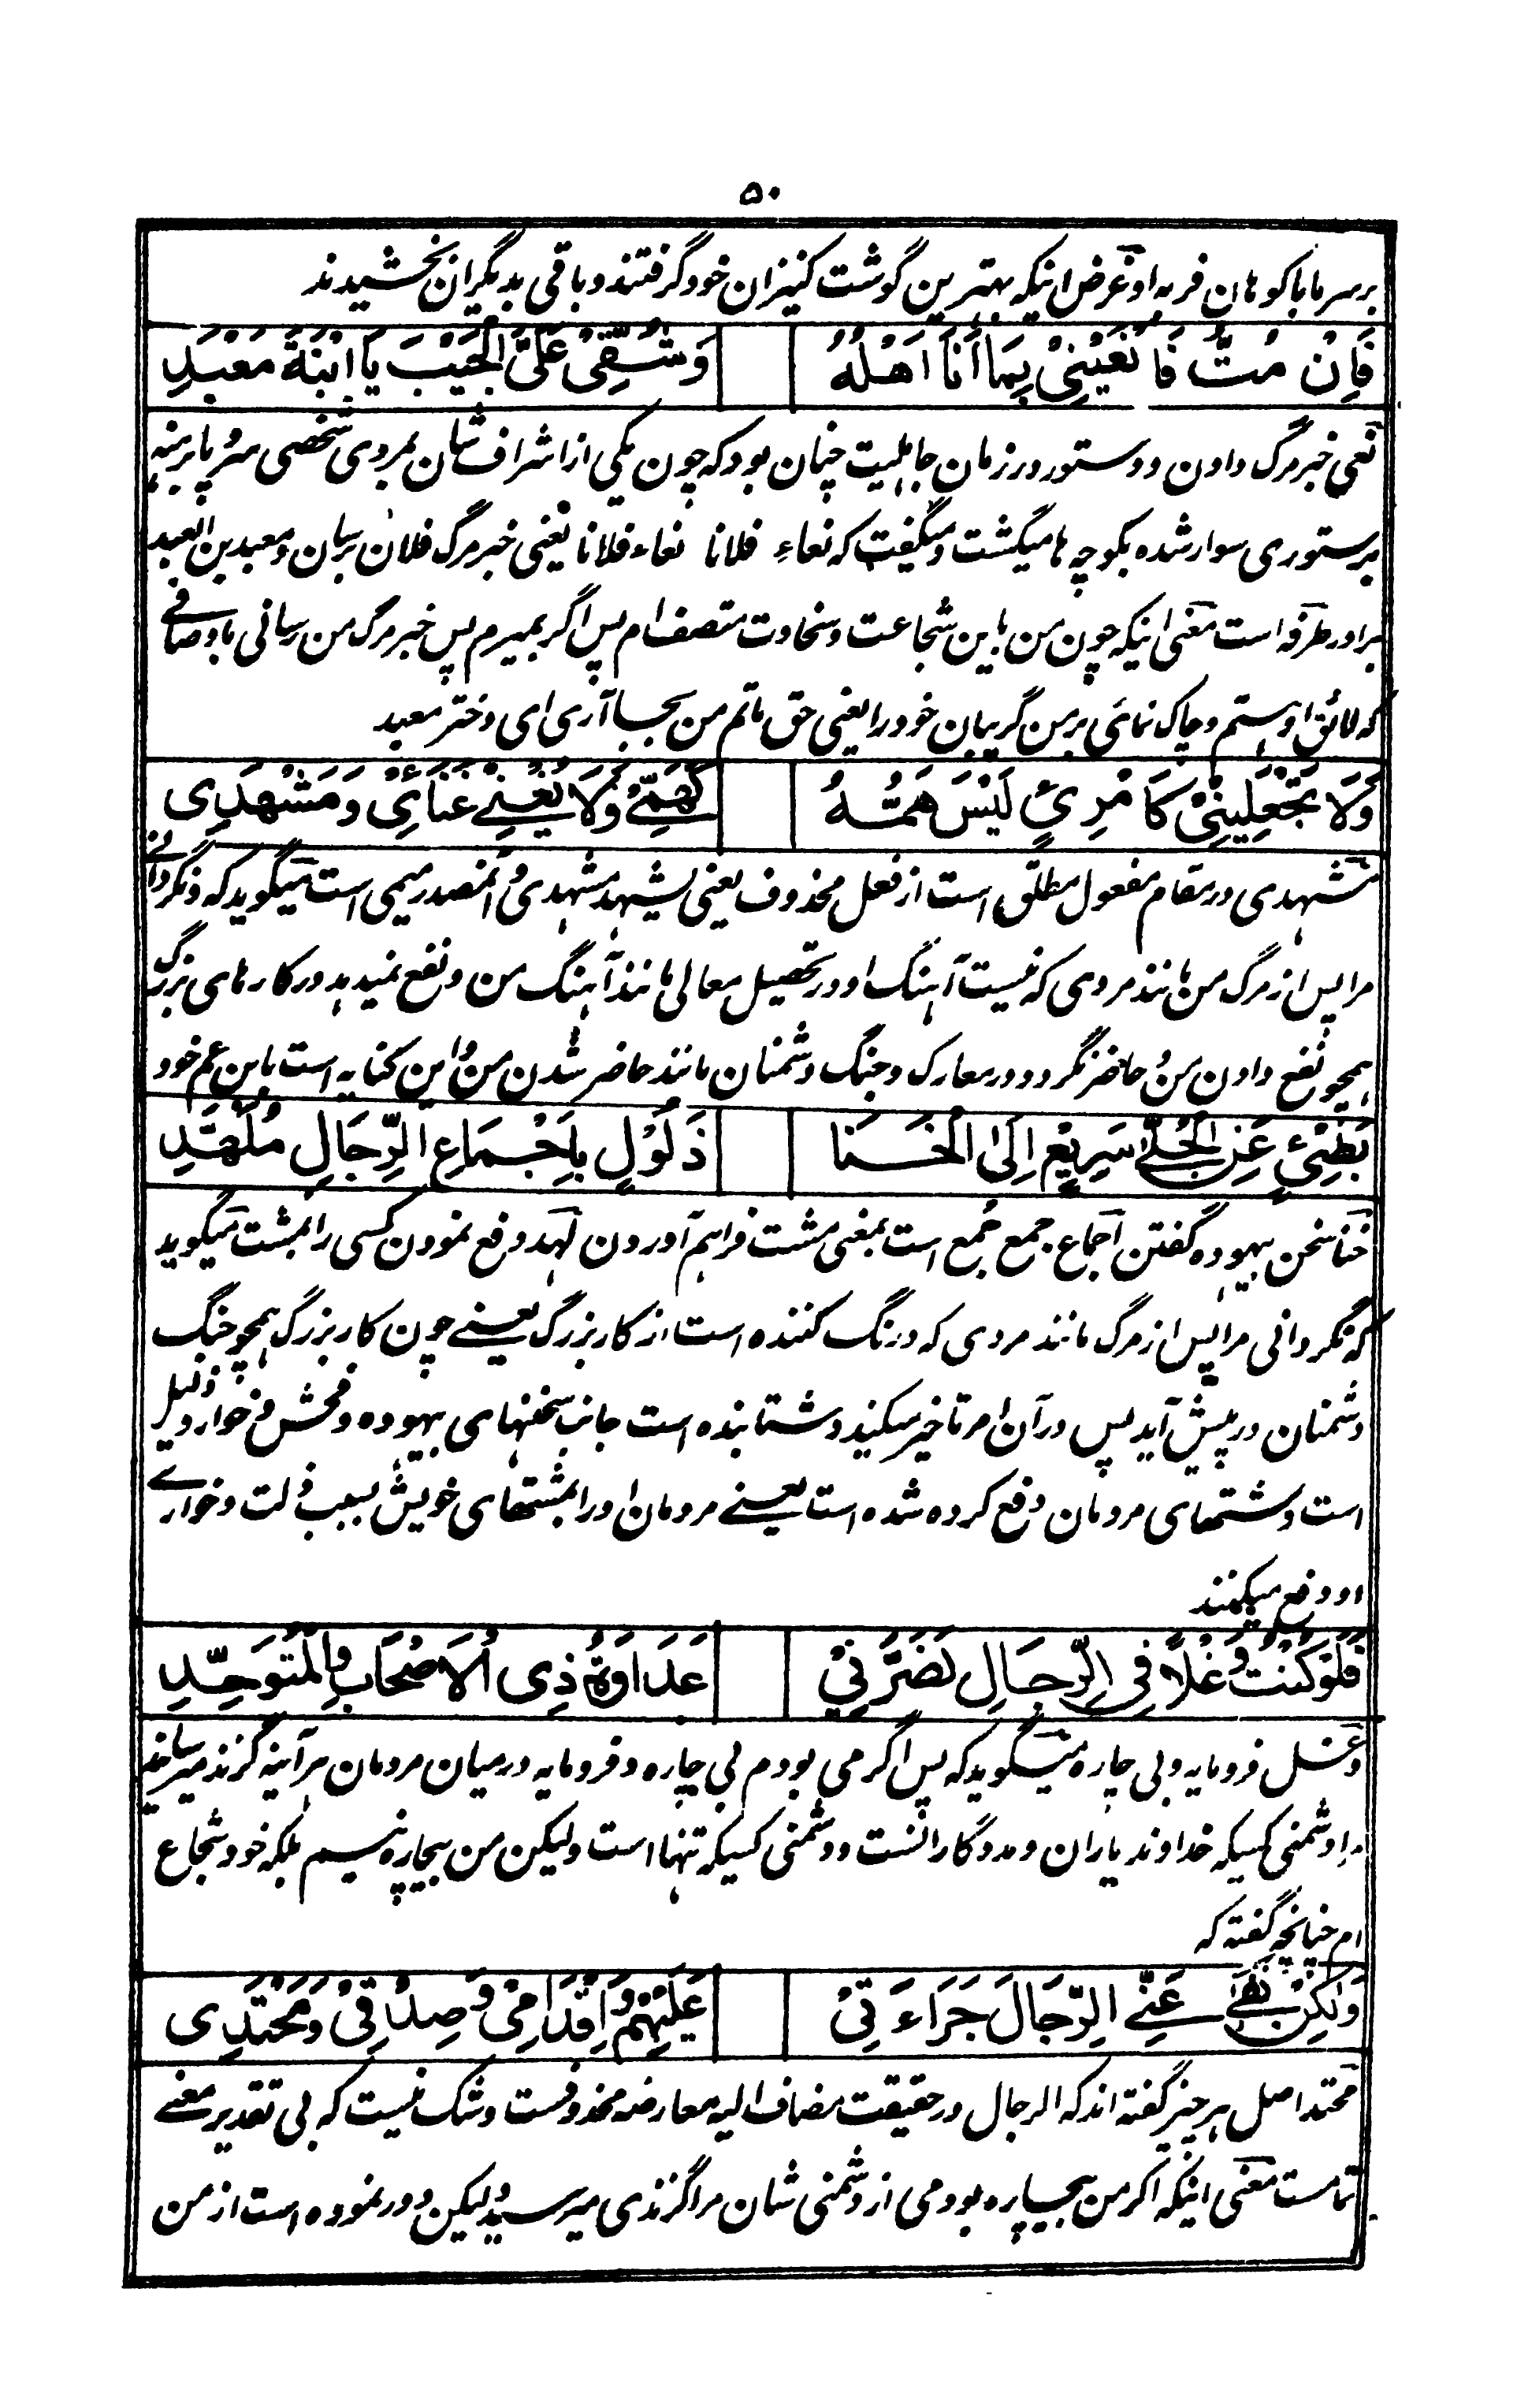 ۵۰
بر سر ما با کوهان فربه او غرض اینکه بهترین گوشت کنیزان خود گرفتند و باقی بدیگران بخشیدند
فَاِنْ مُتُّ فَانْعَیْنِیْ بِمَا اَنَا اَهْلُهُ وَشُقِّیْ عَلَیَّ الْجَیْبَ یَا ابْنَةَ مَعْبَدِ
نعی خبر مرگ دادن و دستور در زمان جاهلیت چنان بود که چون یکی از اشراف شان بمردی شخصی سر و پا برهنه
بر ستوری سوار شده بکوچه ها میگشت و میگفت که نعاءِ فلانا نعاء فلانا یعنی خبر مرگ فلان برسان و معبد بن العبد
برادر طرفه است معنی اینکه چون من باین شجاعت و سخاوت متصف ام پس اگر بمیرم پس خبر مرگ من رسانی باوصافے
که لائق او هستم و چاک نمائی بر من گریبان خود را یعنی حق ماتم من بجا آری ای دختر معبد
وَلَا تَجْعَلِیْنِیْ کَامْرِئٍ لَیْسَ هَمُّهُ کَهَمِّیْ وَلَا یُغْنِیْ غَنَائِیْ وَمَشْهَدِی
مشهدی در مقام مفعول مطلق است از فعل محذوف یعنی لیشهد مشهدی و آنمصدر میمی است میگوید که و نگردانے
مرا پس از مرگ من مانند مردی که نیست آهنگ او در تحصیل معالی مانند آهنگ من و نفع نمیدهد در کارهای بزرگ
همچو نفع دادن من و حاضر نگردد در معارک و جنگ دشمنان مانند حاضر شدن من و این کنایه است بابن عم خود
بَطِیْئٍ عَنِ الْجُلّٰی سَرِیْعٍ اِلَی الْخَنَا ذَلُوْلٍ بِاَجْمَاعِ الرِّجَالِ مُلَهَّدِ
خنا سخن بیهوده گفتن اجماع جمع جُمع است بمعنی مشت فراهم آوردن لهد دفع نمودن کسی را بمشت میگوید
که نگردانی مرا پس از مرگ مانند مردی که درنگ کننده است از کار بزرگ یعنے چون کار بزرگ همچو جنگ
دشمنان در پیش آید پس در آن امر تاخیر میکند و شتابنده است جانب سخنهای بیهوده و فحش و خوار و ذلیل
است و بمشتهای مردمان دفع کرده شده است یعنے مردمان او را بمشتهای خویش بسبب ذلت و خوارے
او دفع میکنند
فَلَوْ کُنْتُ وَغْلًا فِی الرِّجَالِ لَضَرَّنِیْ عَدَاوَةُ ذِی الْاَصْحَابِ وَالْمُتَوَحِّدِ
وغل فرومایه و بی چاره میگوید که پس اگر می بودم بی چاره و فرومایه درمیان مردمان هر آینه گزند میرسانید
مرا دشمنی کسیکه خداوند یاران و مددگارانست و دشمنی کسیکه تنها است ولیکن من بیچاره نیستم بلکه خود شجاع
ام چنانچه گفته که
وَلٰکِنْ نَفٰی عَنِّیْ الرِّجَالَ جَرَاءَتِیْ عَلَیْهِمْ وَاِقْدَامِیْ وَصِدْقِیْ وَمَحْتَدِی
محتد اصل هر چیز گفته اند که الرجال در حقیقت مضاف الیه معارضه محذوفست و شک نیست که بی تقدیر معنے
تمامست معنی اینکه اگر من بیچاره بودمی از دشمنی شان مرا گزندی میرسید ولیکن دور نموده است از من